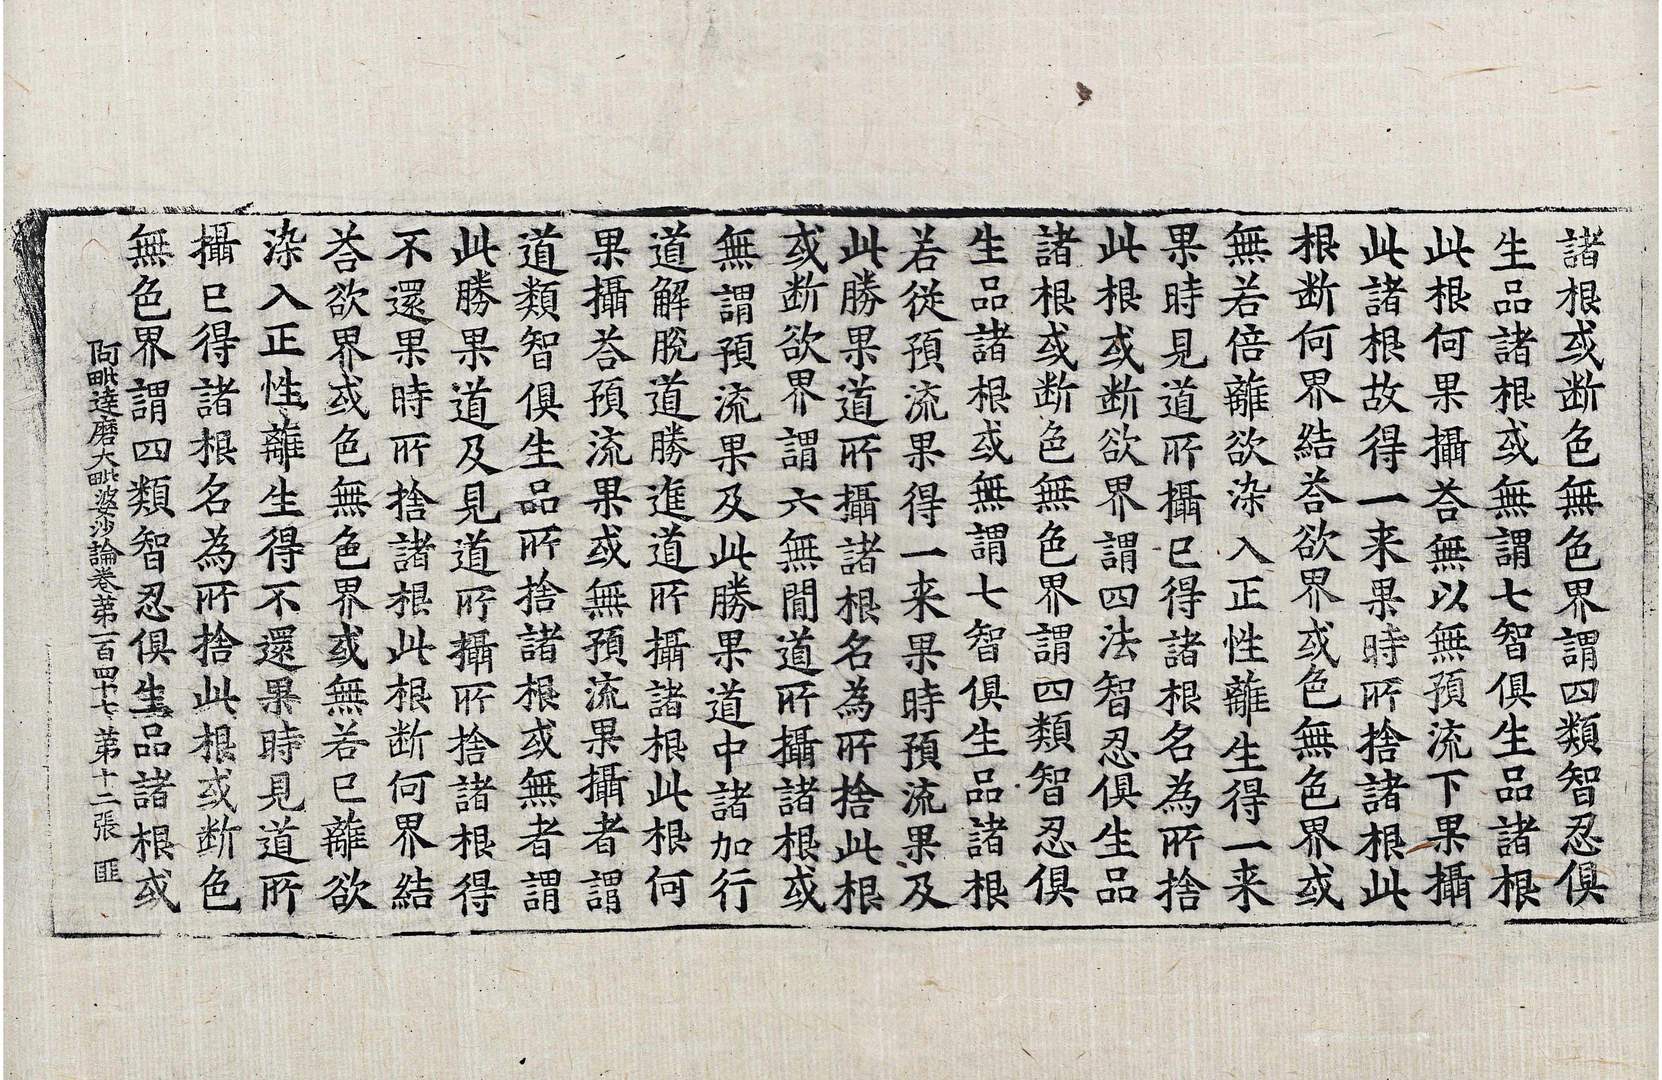 諸根或断色無色界謂四類智忍俱
生品諸根或無謂七智俱生品諸根
此根何果攝荅無以無預流下果攝
此諸根故得一来果時所捨諸根此
根断何界結荅欲界或色無色界或
無若倍離欲染入正性離生得一来
果時見道所攝已得諸根名為所捨
此根或断欲界謂四法智忍俱生品
諸根或断色無色界謂四類智忍俱
生品諸根或無謂七智俱生品諸根
若從預流果得一来果時預流果及
此勝果道所攝諸根名為所捨此根
或断欲界謂六無間道所攝諸根或
無謂預流果及此勝果道中諸加行
道解脫道勝進道所攝諸根此根何
果攝荅預流果或無預流果攝者謂
道類智俱生品所捨諸根或無者謂
此勝果道及見道所攝所捨諸根得
不還果時所捨諸根此根断何界結
荅欲界或色無色界或無若已離欲
染入正性離生得不還果時見道所
攝已得諸根名為所捨此根或断色
無色界謂四類智忍俱生品諸根或
阿毗達磨大毗婆沙論卷第一百四十七 第十二張 匪